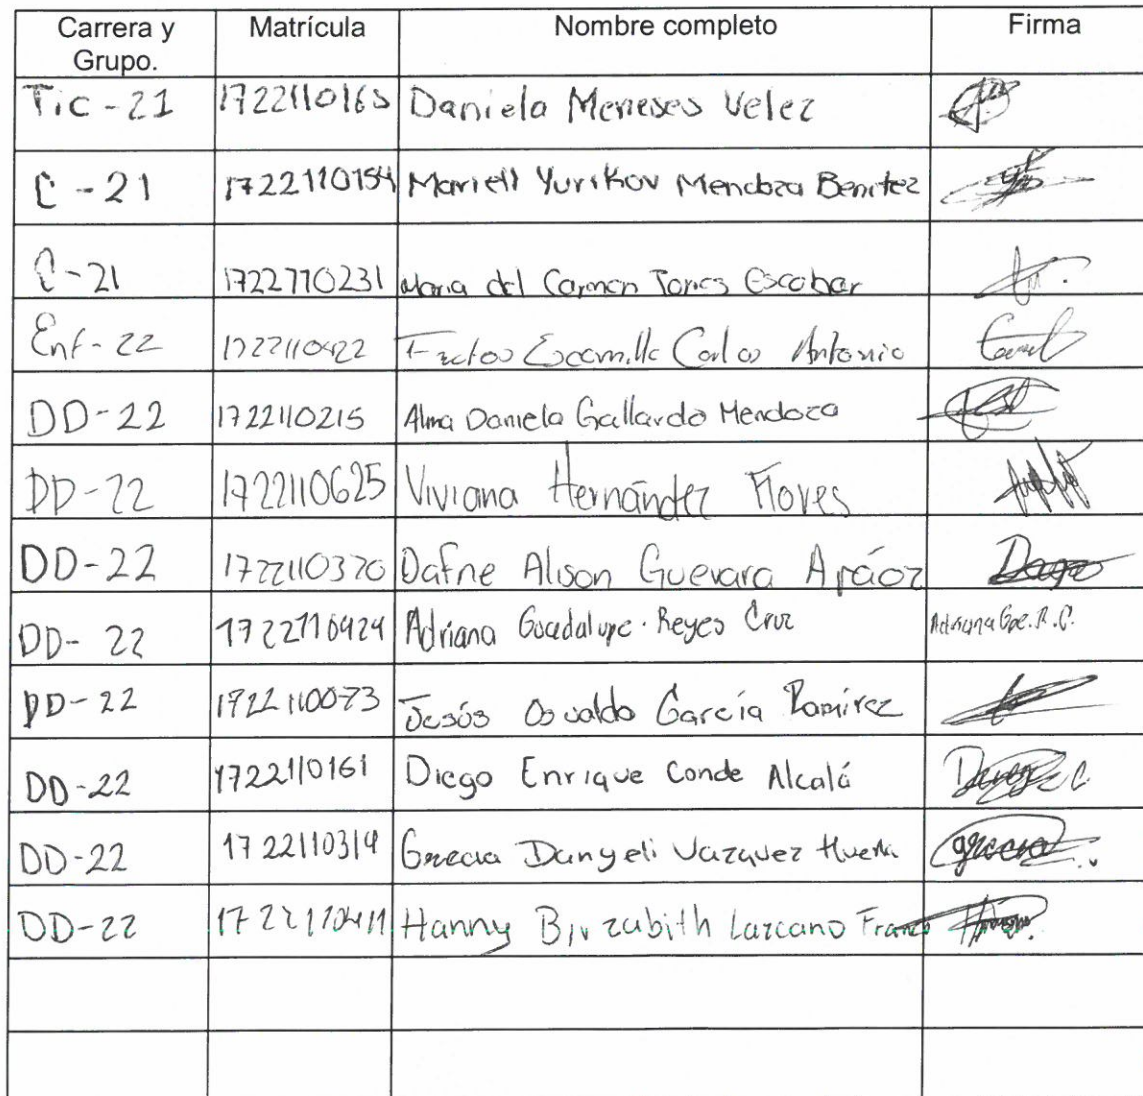 Carrera y Grupo. Matrícula Nombre completo Firma
Tic-21 1722110165 Daniela Meneses Velez
C-21 1722110154 Mariell Yurikov Mendoza Benitez
C-21 1722110231 Maria del Carmen Torres Escobar
Enf-22 1722110422 Escamilla Carlos Antonio
DD-22 1722110215 Alma Daniela Gallardo Mendoza
DD-22 1722110625 Viviana Hernández Flores
DD-22 1722110370 Dafne Alison Guevara Apáoz
DD-22 1722110424 Adriana Guadalupe Reyes Cruz Adriana Gpe. R.C.
DD-22 1722110073 Jesús Osvaldo García Ramírez
DD-22 1722110161 Diego Enrique Conde Alcalá
DD-22 1722110314 Grecia Danyeli Vazquez Huerta grecia
DD-22 1722110411 Hanny Lazcano Franco